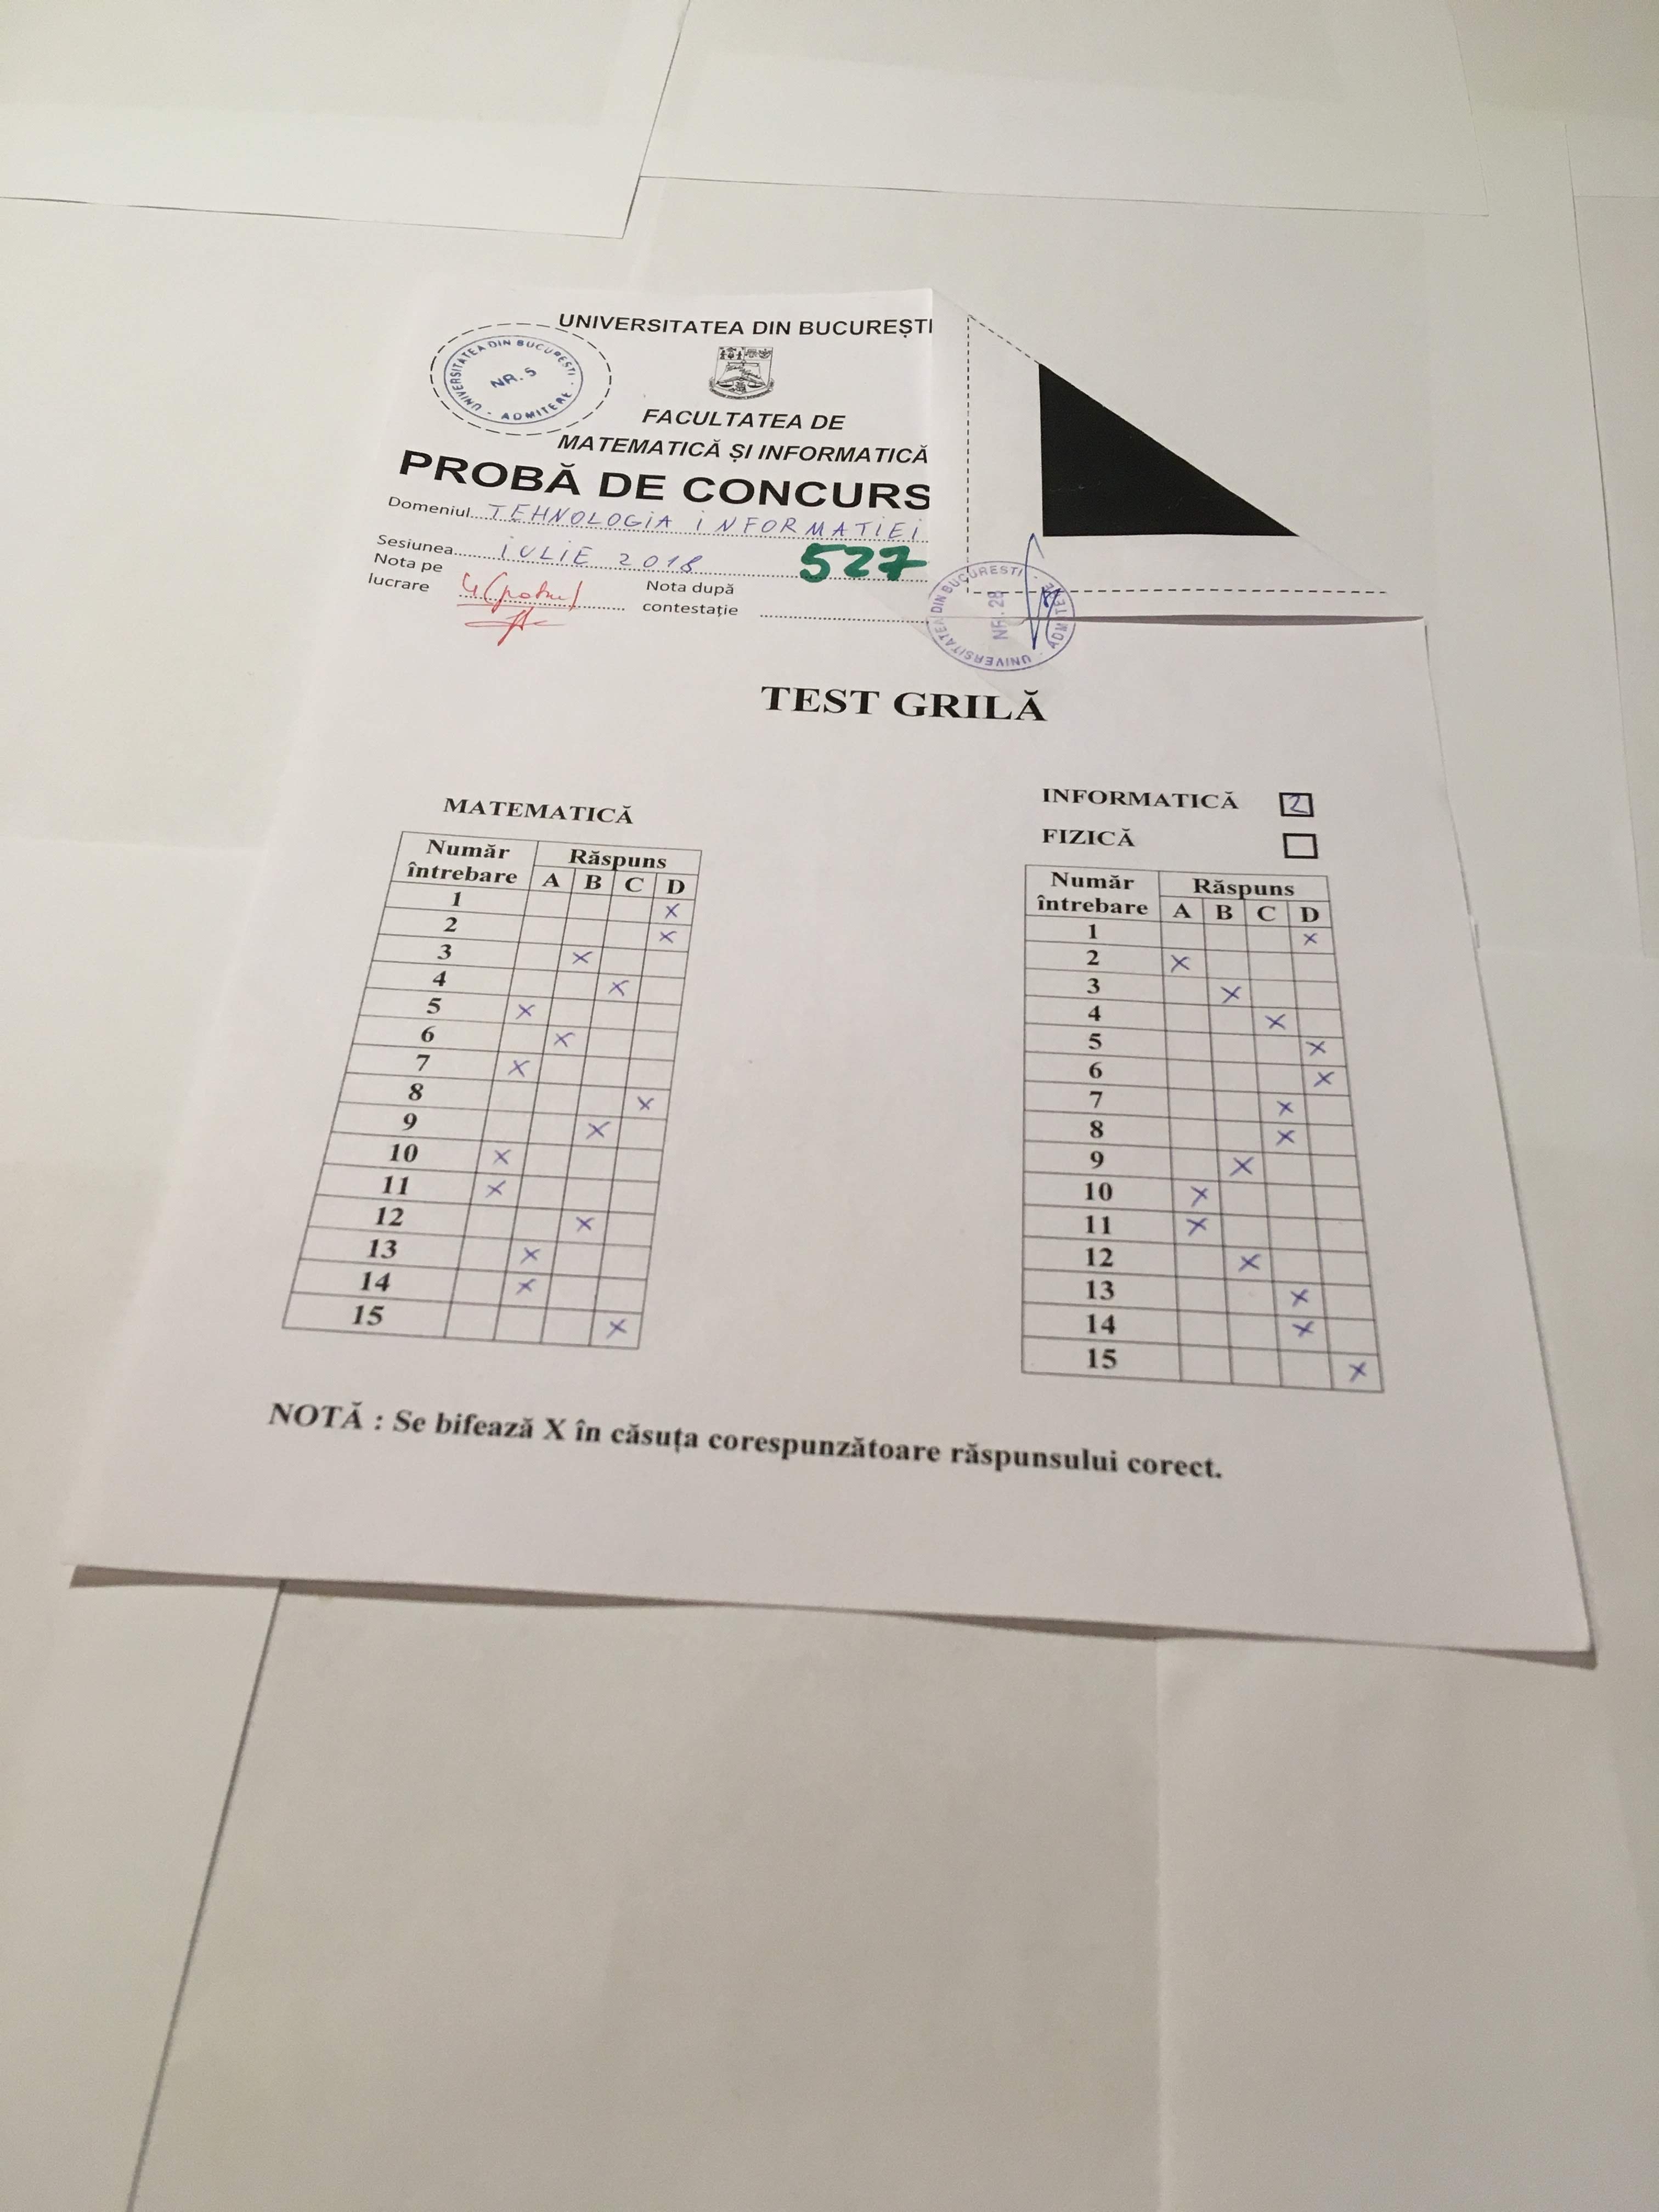 UNIVERSITATEA DIN BUCUREȘTI
UNIVERSITATEA DIN BUCUREȘTI - ADMITERE -
NR. 5
FACULTATEA DE
MATEMATICĂ ȘI INFORMATICĂ
PROBĂ DE CONCURS
Domeniul TEHNOLOGIA INFORMATIEI
Sesiunea IULIE 2018 527
Nota pe
lucrare 4 (patru)
Nota după
contestație
UNIVERSITATEA DIN BUCURESTI - ADMITERE -
NR. 28
TEST GRILĂ
MATEMATICĂ
Număr întrebare Răspuns
A B C D
1 X
2 X
3 X
4 X
5 X
6 X
7 X
8 X
9 X
10 X
11 X
12 X
13 X
14 X
15 X
INFORMATICĂ 2
FIZICĂ
Număr întrebare Răspuns
A B C D
1 X
2 X
3 X
4 X
5 X
6 X
7 X
8 X
9 X
10 X
11 X
12 X
13 X
14 X
15 X
NOTĂ : Se bifează X în căsuța corespunzătoare răspunsului corect.